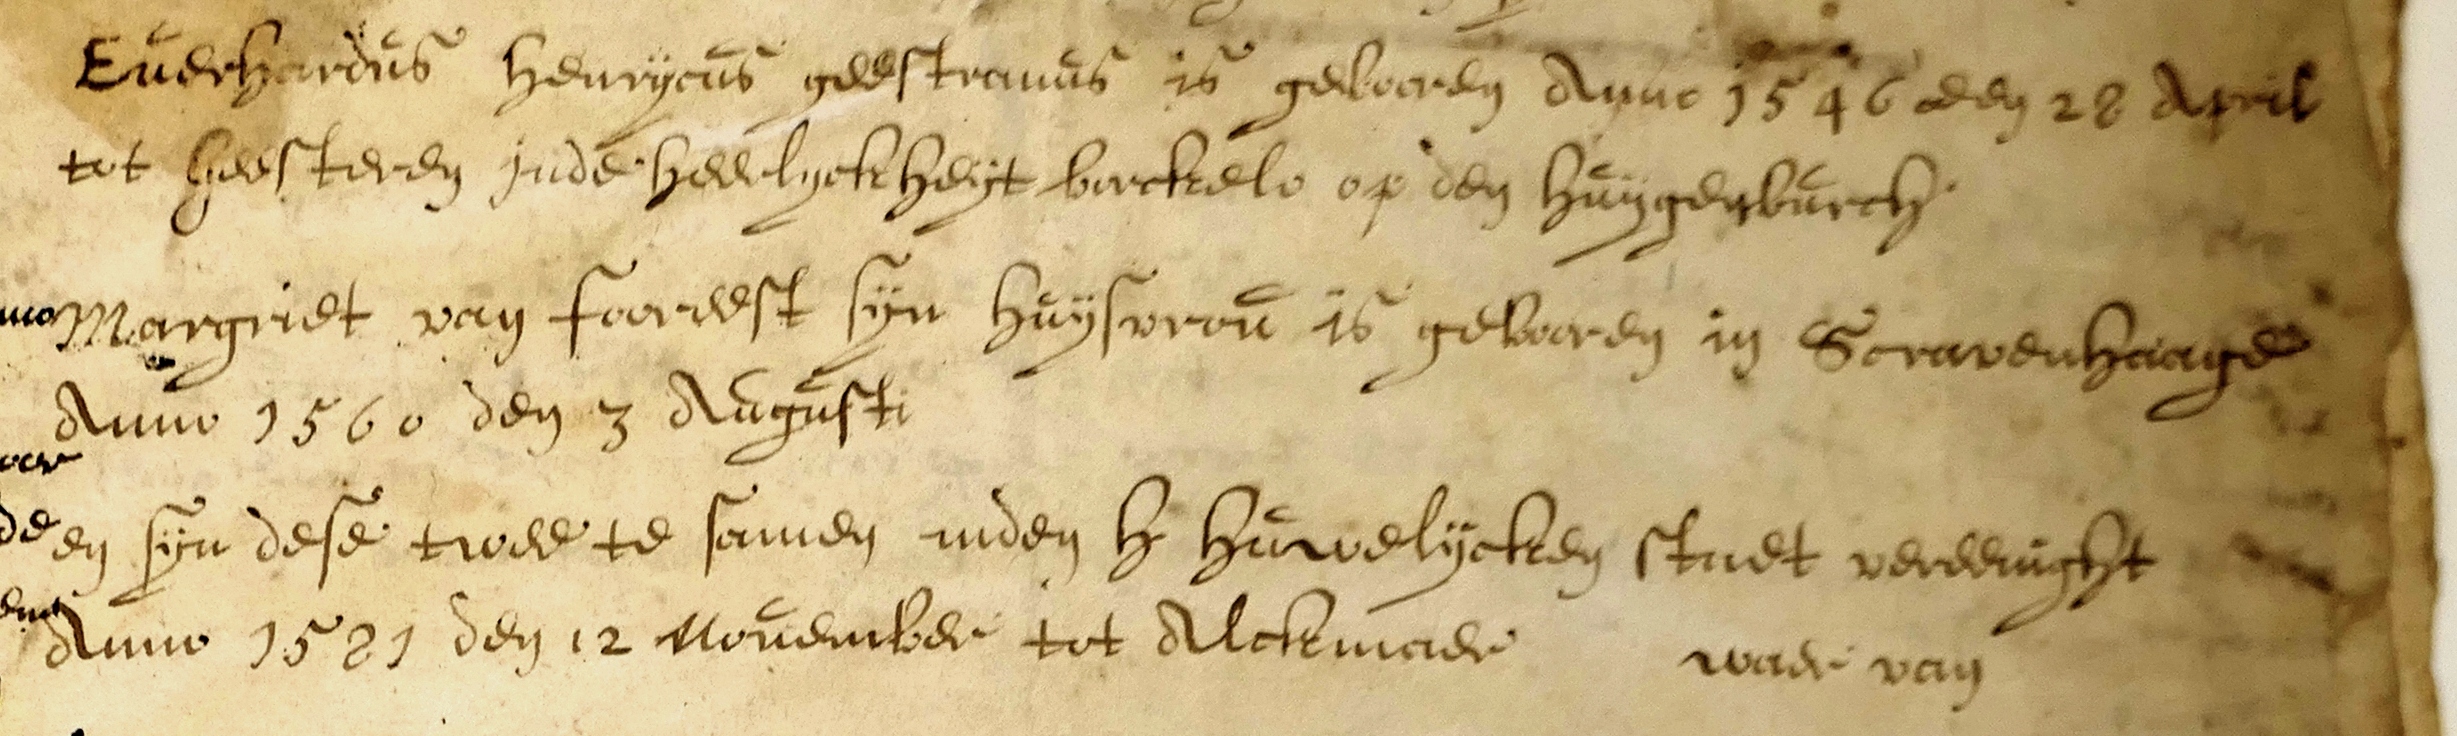 Euerhardus Henrÿcus geestranus is gebooren Anno 1546 den 28 April
tot geesteren inde heerlyckheÿt borckelo op den huÿgenburch
Margriet van foreest sÿn huÿsvrou is gebooren in Scravenhaage
Anno 1560 den 3 Augusti
en sÿn dese twee te samen inden h huwelÿcken staet vereenight
Anno 1581 den 12 November tot Alckmaer waer van